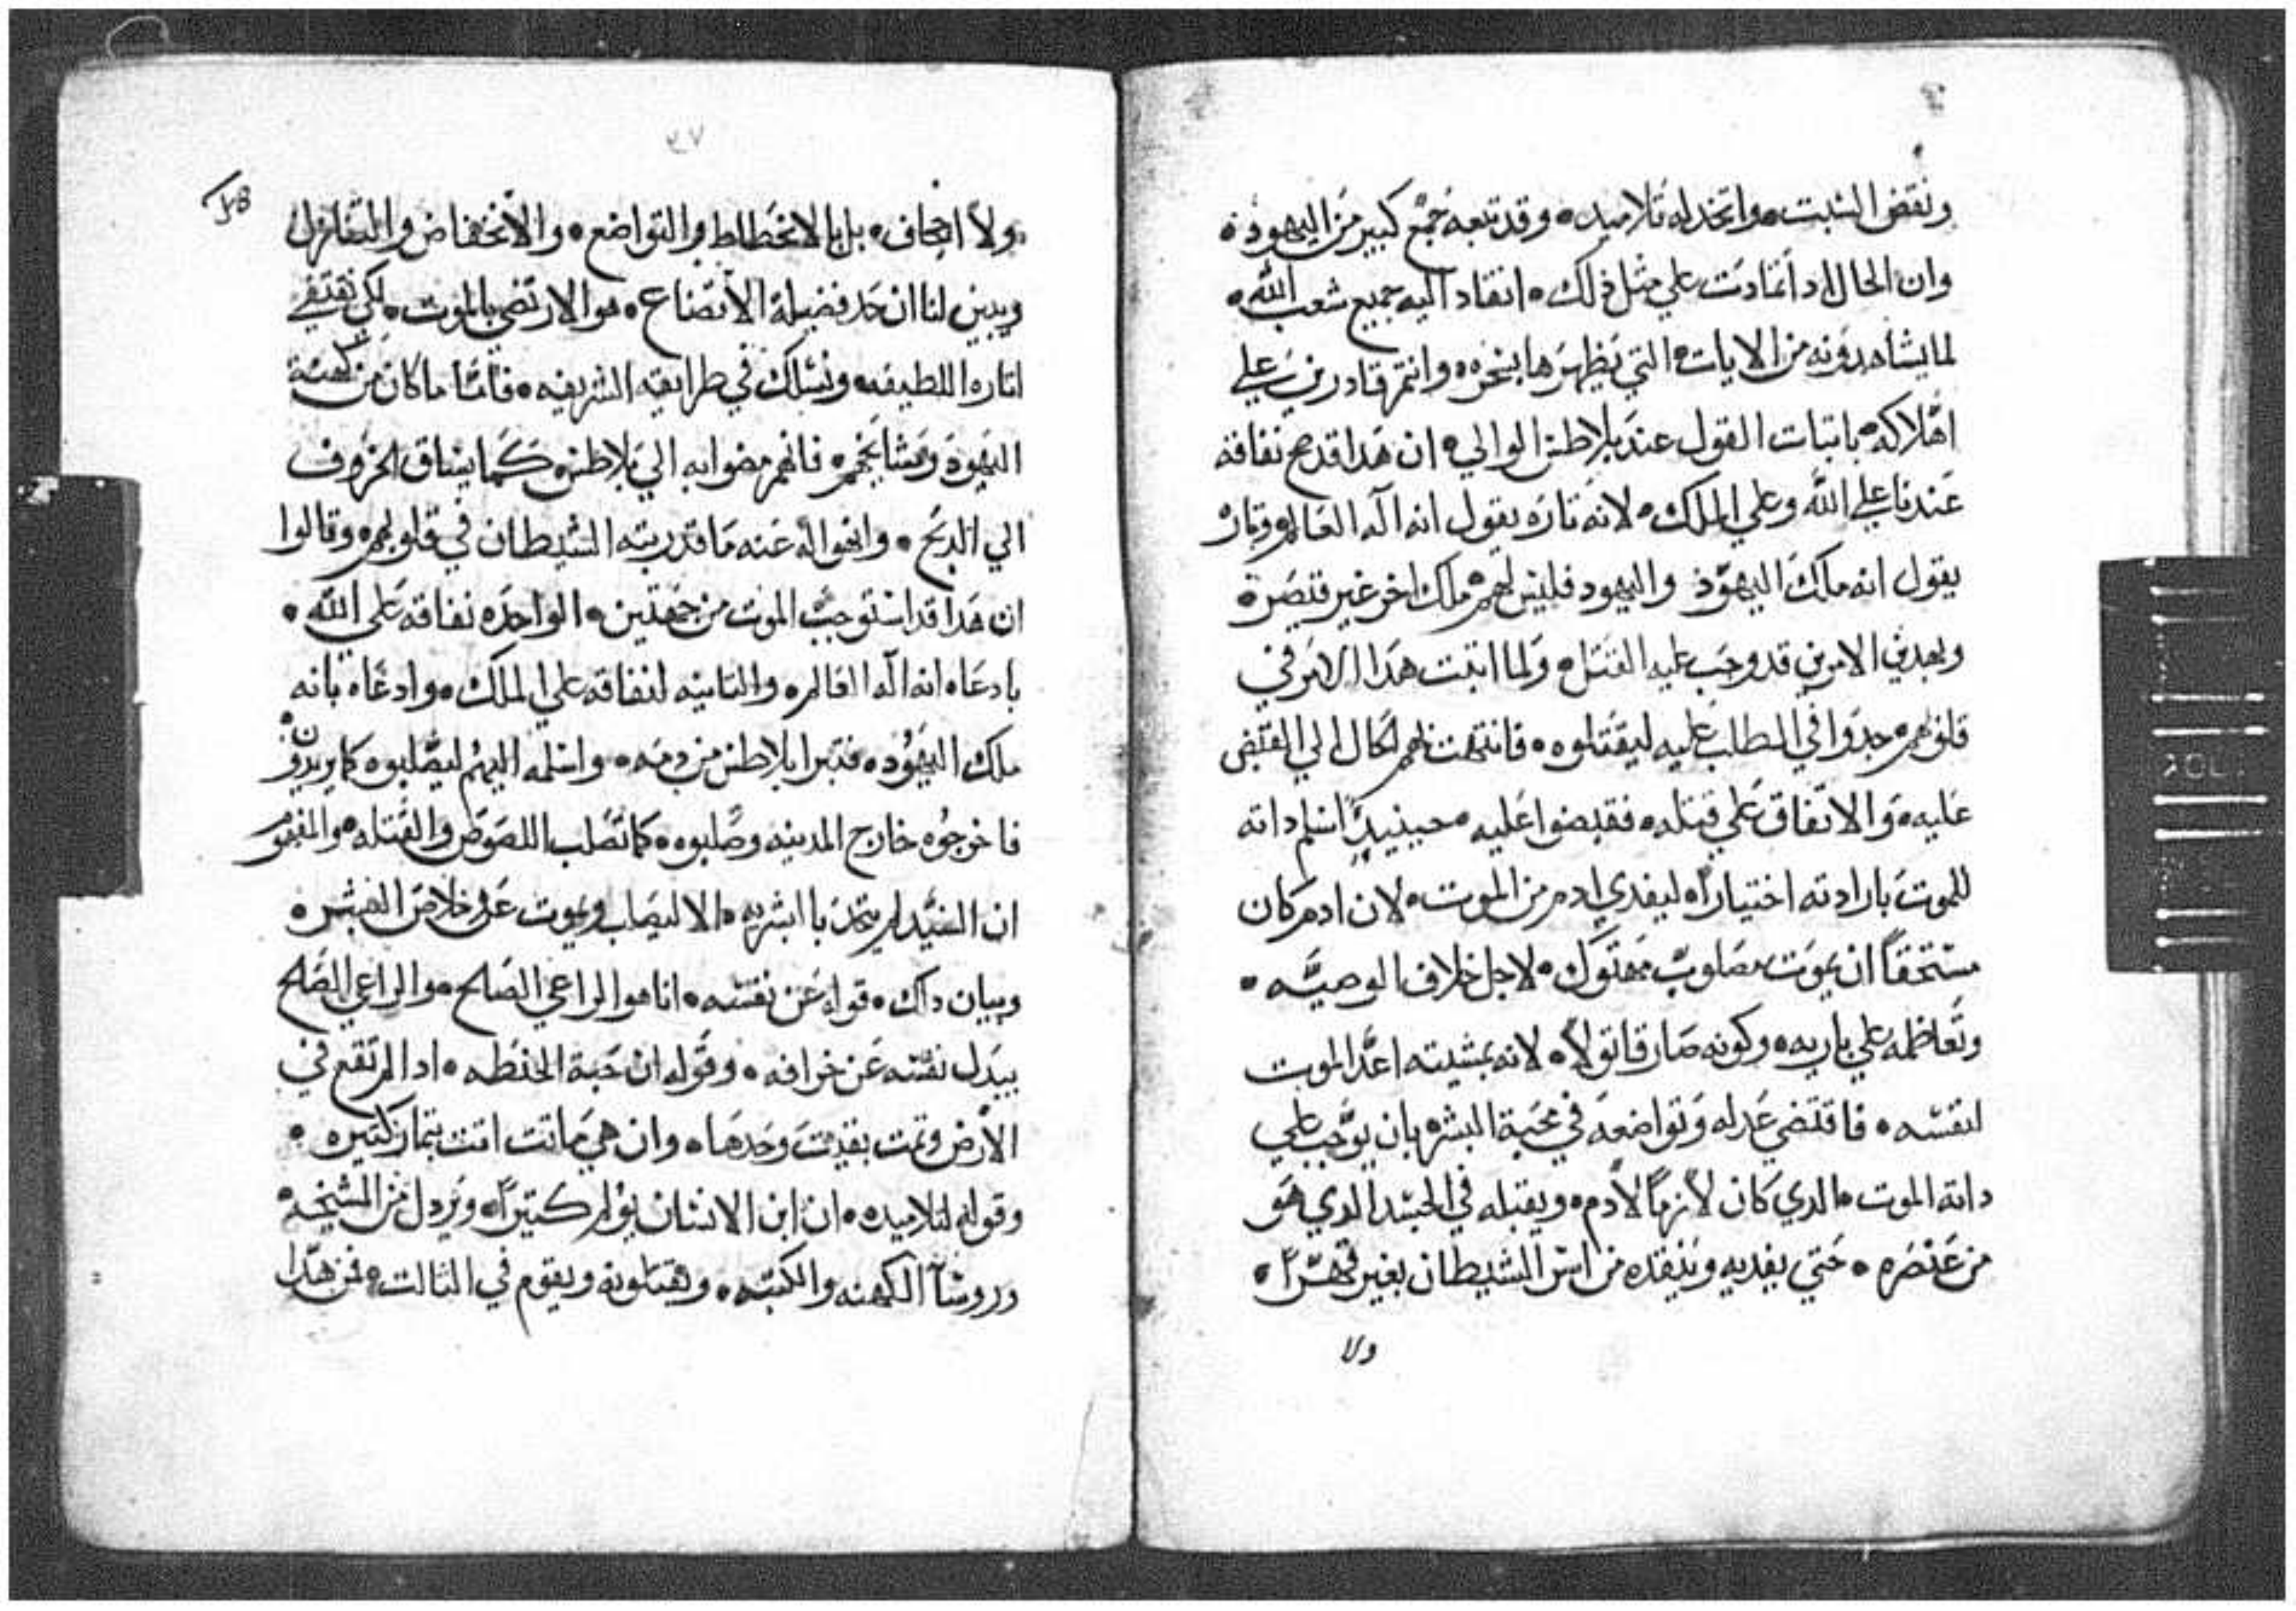 ونقض السبت • واتخد له تلاميد • وقد تبعه جمع كبير من اليهود •
وان الحال اد اتمادت علي مثل ذلك • انقاد اليه جميع شعب الله •
لما يشاهدونه من الايات التي يظهرها بنحره • وانتم قادرين علي
اهلاكه • باتبات القول عند بلاطس الوالي • ان هدا قد صح نفاقة
عندنا علي الله وعلي الملك • لانه تاره يقول انه اله العالم وتاره
يقول انه ملك اليهود واليهود فليس لهم ملك اخر غير قيصر •
وبهدين الامرين قد وجب عليه القتل • ولما اتبت هدا الامر في
قلوبهم • جدوا في الطلب عليه ليقتلوه • فانتهت بهم الحال الي القبض
عليه • والاتفاق علي قتله • فقبضوا عليه • حينيدٍ اسلم داته
للموت بارادته اختياراً • ليفدي ادم من الموت • لان ادم كان
مستحقاً ان يموت مصلوب مهتوك • لاجل خلاف الوصيه •
وتعاظمه علي باريه • وكونه صار قاتولاً • لانه بمشيته اعد الموت
لنفسه • فاقتضي عدله وتواضعه في محبة البشر • بان يوجب علي
داته الموت • الدي كان لازماً لادم • ويقبله في الجسد الدي هو
من عنصره • حتي يفديه وينقده من اسر الشيطان بغير قهراً •
ولا
٤٧
48
ولا اجحاف • بل بالانحطاط والتواضع • والانخفاض والتنازل
ويبين لنا ان حد فضيلة الاتضاع • هو الارتضي بالموت • لكي نقتفي
اتاره اللطيفه • ونسلك في طرايقه الشريفه • فاما ما كان من كهنة
اليهود ومشايخهم • فانهم مضوا به الي بلاطس • كما يساق الخروف
الي الدبح • وانهوا له عنه ما قد ربته الشيطان في قلوبهم • وقالوا
ان هدا قد استوجب الموت من جهتين • الواحده نفاقه علي الله •
بادعاه انه اله العالم • والتانيه لنفاقه علي الملك • وادعاه بانه
ملك اليهود • فتبرا بلاطس من دمه • واسلمه اليهم ليصلبوه كما يريدون
فاخرجوه خارج المدينه وصلبوه • كما تصلب اللصوص والقتله • والمفهوم
ان السيد لم يتحد باابشريه • الا ليصلب ويموت عن خلاص البشر •
وبيان داك • قوله عن نفسه • انا هو الراعي الصالح • والراعي الصالح
يبدل نفسه عن خرافه • وقوله ان حبة الحنطه • ادا لم تقع في
الارض وتمت بقيت وحدها • وان هي ماتت اتت بتمار كتيره •
وقوله لتلاميده • ان ابن الانسان يولم كتيراً • ويردل من المشيخه
وروسآ الكهنه والكتبه • ويقتلونه ويقوم في التالت • فمن هدا